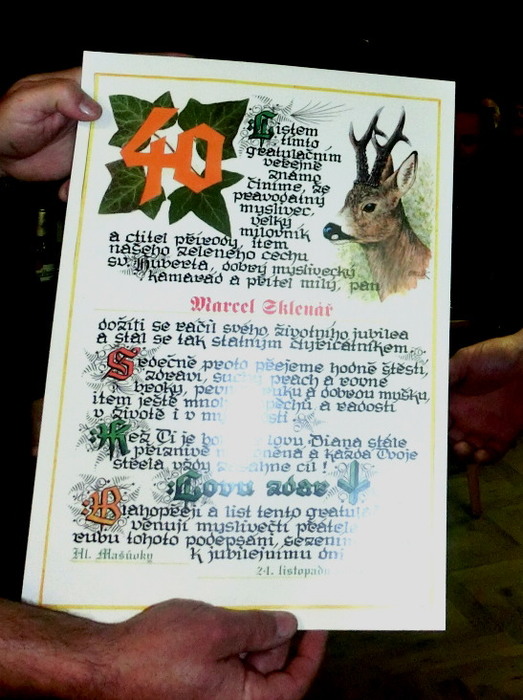 40
Listem
tímto
gratulačním
veřejně
známo
činíme, že
pravodatný
myslivec,
velký
milovník
a ctitel přírody, item
našeho zeleného cechu
sv. Huberta, dobrý myslivecký
kamarád a přítel milý, pan
Marcel Sklenář
dožíti se ráčil svého životního jubilea
a stal se tak statným čtyřicátníkem.
Srdečně proto přejeme hodně štěstí,
zdraví, suchý prach a rovné
broky, ruku a dobrou mušku,
item ještě mnoho a radostí
v životě i v
Kéž Ti je lovu Diana stále
příznivě nakloněna a každá Tvoje
střela vždy zasáhne cíl!
Lovu zdar
Blahopřejí a list tento
věnují myslivečtí přátelé
rubu tohoto podepsáni,
Hl. Mašůvky k jubilejnímu dni
24. listopadu